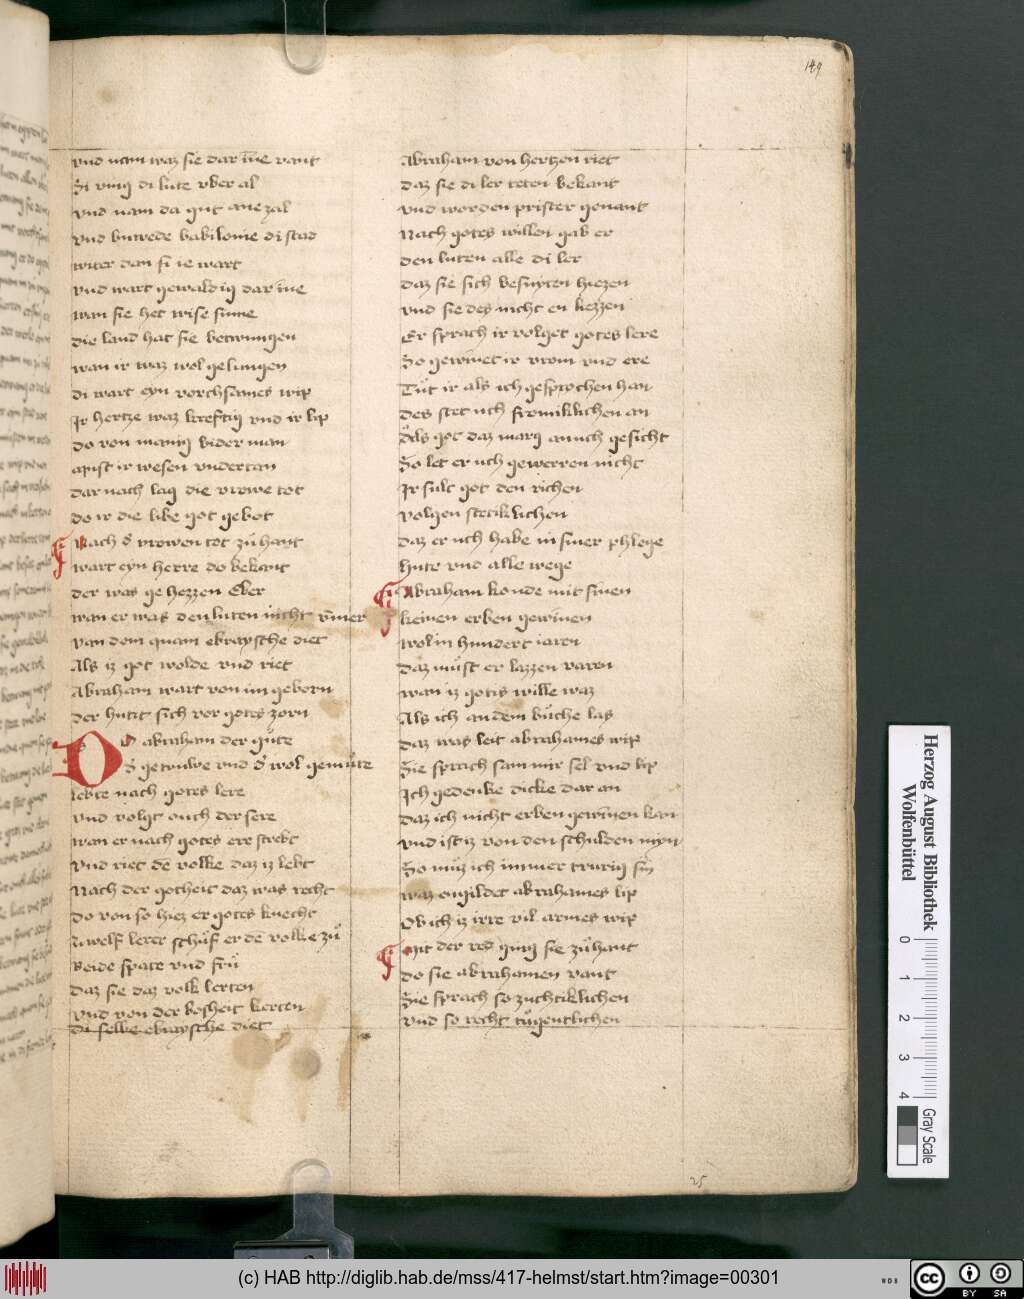 149
vnd nam waz sie dar īne vant
Si ving di lute vber al
vnd nam da gut ane zal
vnd buwede babilonie di stad
witer dan si ie wart
vnd wart geweldig dar īne
wan sie het wise sinne
die land hat sie betwungen
wan ir waz wol gelungen
di wart eyn vorchsames wip
Jr hertze waz kreftig vnd ir lip
do von manig bider man
must ir wesen vndertan
dar nach lag die vrowe tot
do ir die libe got gebot
Nach d' vrowen tot zů hant
wart eyn herre do bekant
der was gehezzen Eber
wan er was den luten nicht v̄mer
van dem quam ebraysche diet
Als iz got wolde vnd riet
Abraham wart von im geborn
der hutit sich vor gotes zorn
Do abraham der gůte
d' getruwe vnd d' wol gemůte
lebte nach gotes lere
vnd volgt ouch der sere
wan er nach gotes ere strebt
vnd riet de volke daz iz lebt
Nach der gotheit daz was recht
do von so hiez er gotes knecht
zwelf lerer schůf er de volke zů
Beide spate vnd frů
daz sie daz volk lerten
vnd von der bosheit kerten
di selbe ebraysche diet
Abraham von hertzen riet
daz sie di ler teten bekant
vnd worden prister genant
Nach gotes willen gab er
den luten alle di ler
daz sie sich besniten hiezen
vnd sie des nicht en liezzen
Er sprach ir volget gotes lere
So gewīnet ir vrom vnd ere
Tůt ir als ich gesprochen han
des stet uch fromiklichen an
als got daz marg an uch gesicht
So let er uch gewerren nicht
Jr sult got den richen
volgen stetiklichen
daz er uch habe in siner phlege
hute vnd alle wege
Abraham konde mit sinen
keinen erben gewinen
wol in hundert iaren
daz můst er lazzen varen
wan iz gotis wille waz
Als ich an dem bůche las
daz was leit abrahames wip
Sie sprach sam mir sel vnd lip
Jch gedenke dicke dar an
daz ich nicht erben gewīnen kan
vnd ist iz von den schulden myn
So můz ich immer trurig sin
waz engildet abrahames lip
Ob ich iz irre vil armes wip
Mit der red ging sie zů hant
do sie abrahamen vant
Sie sprach so zuchtiklichen
vnd so recht tůgentlichen
25
Herzog August Bibliothek
Wolfenbüttel
0 1 2 3 4
Gray Scale
(c) HAB http://diglib.hab.de/mss/417-helmst/start.htm?image=00301
WDB
cc BY SA